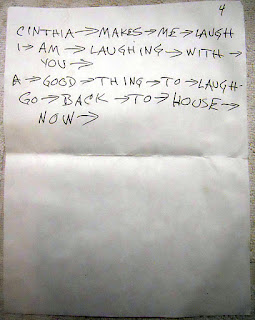 4
CINTHIA→MAKES→ME→LAUGH
I→AM→LAUGHING→WITH→
YOU→
A→GOOD→THING→TO→LAUGH-
GO→BACK→TO→HOUSE→
NOW→